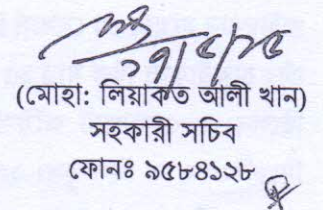 ২৭/৫/২৫
(মোহা: লিয়াকত আলী খান)
সহকারী সচিব
ফোনঃ ৯৫৮৪১২৮